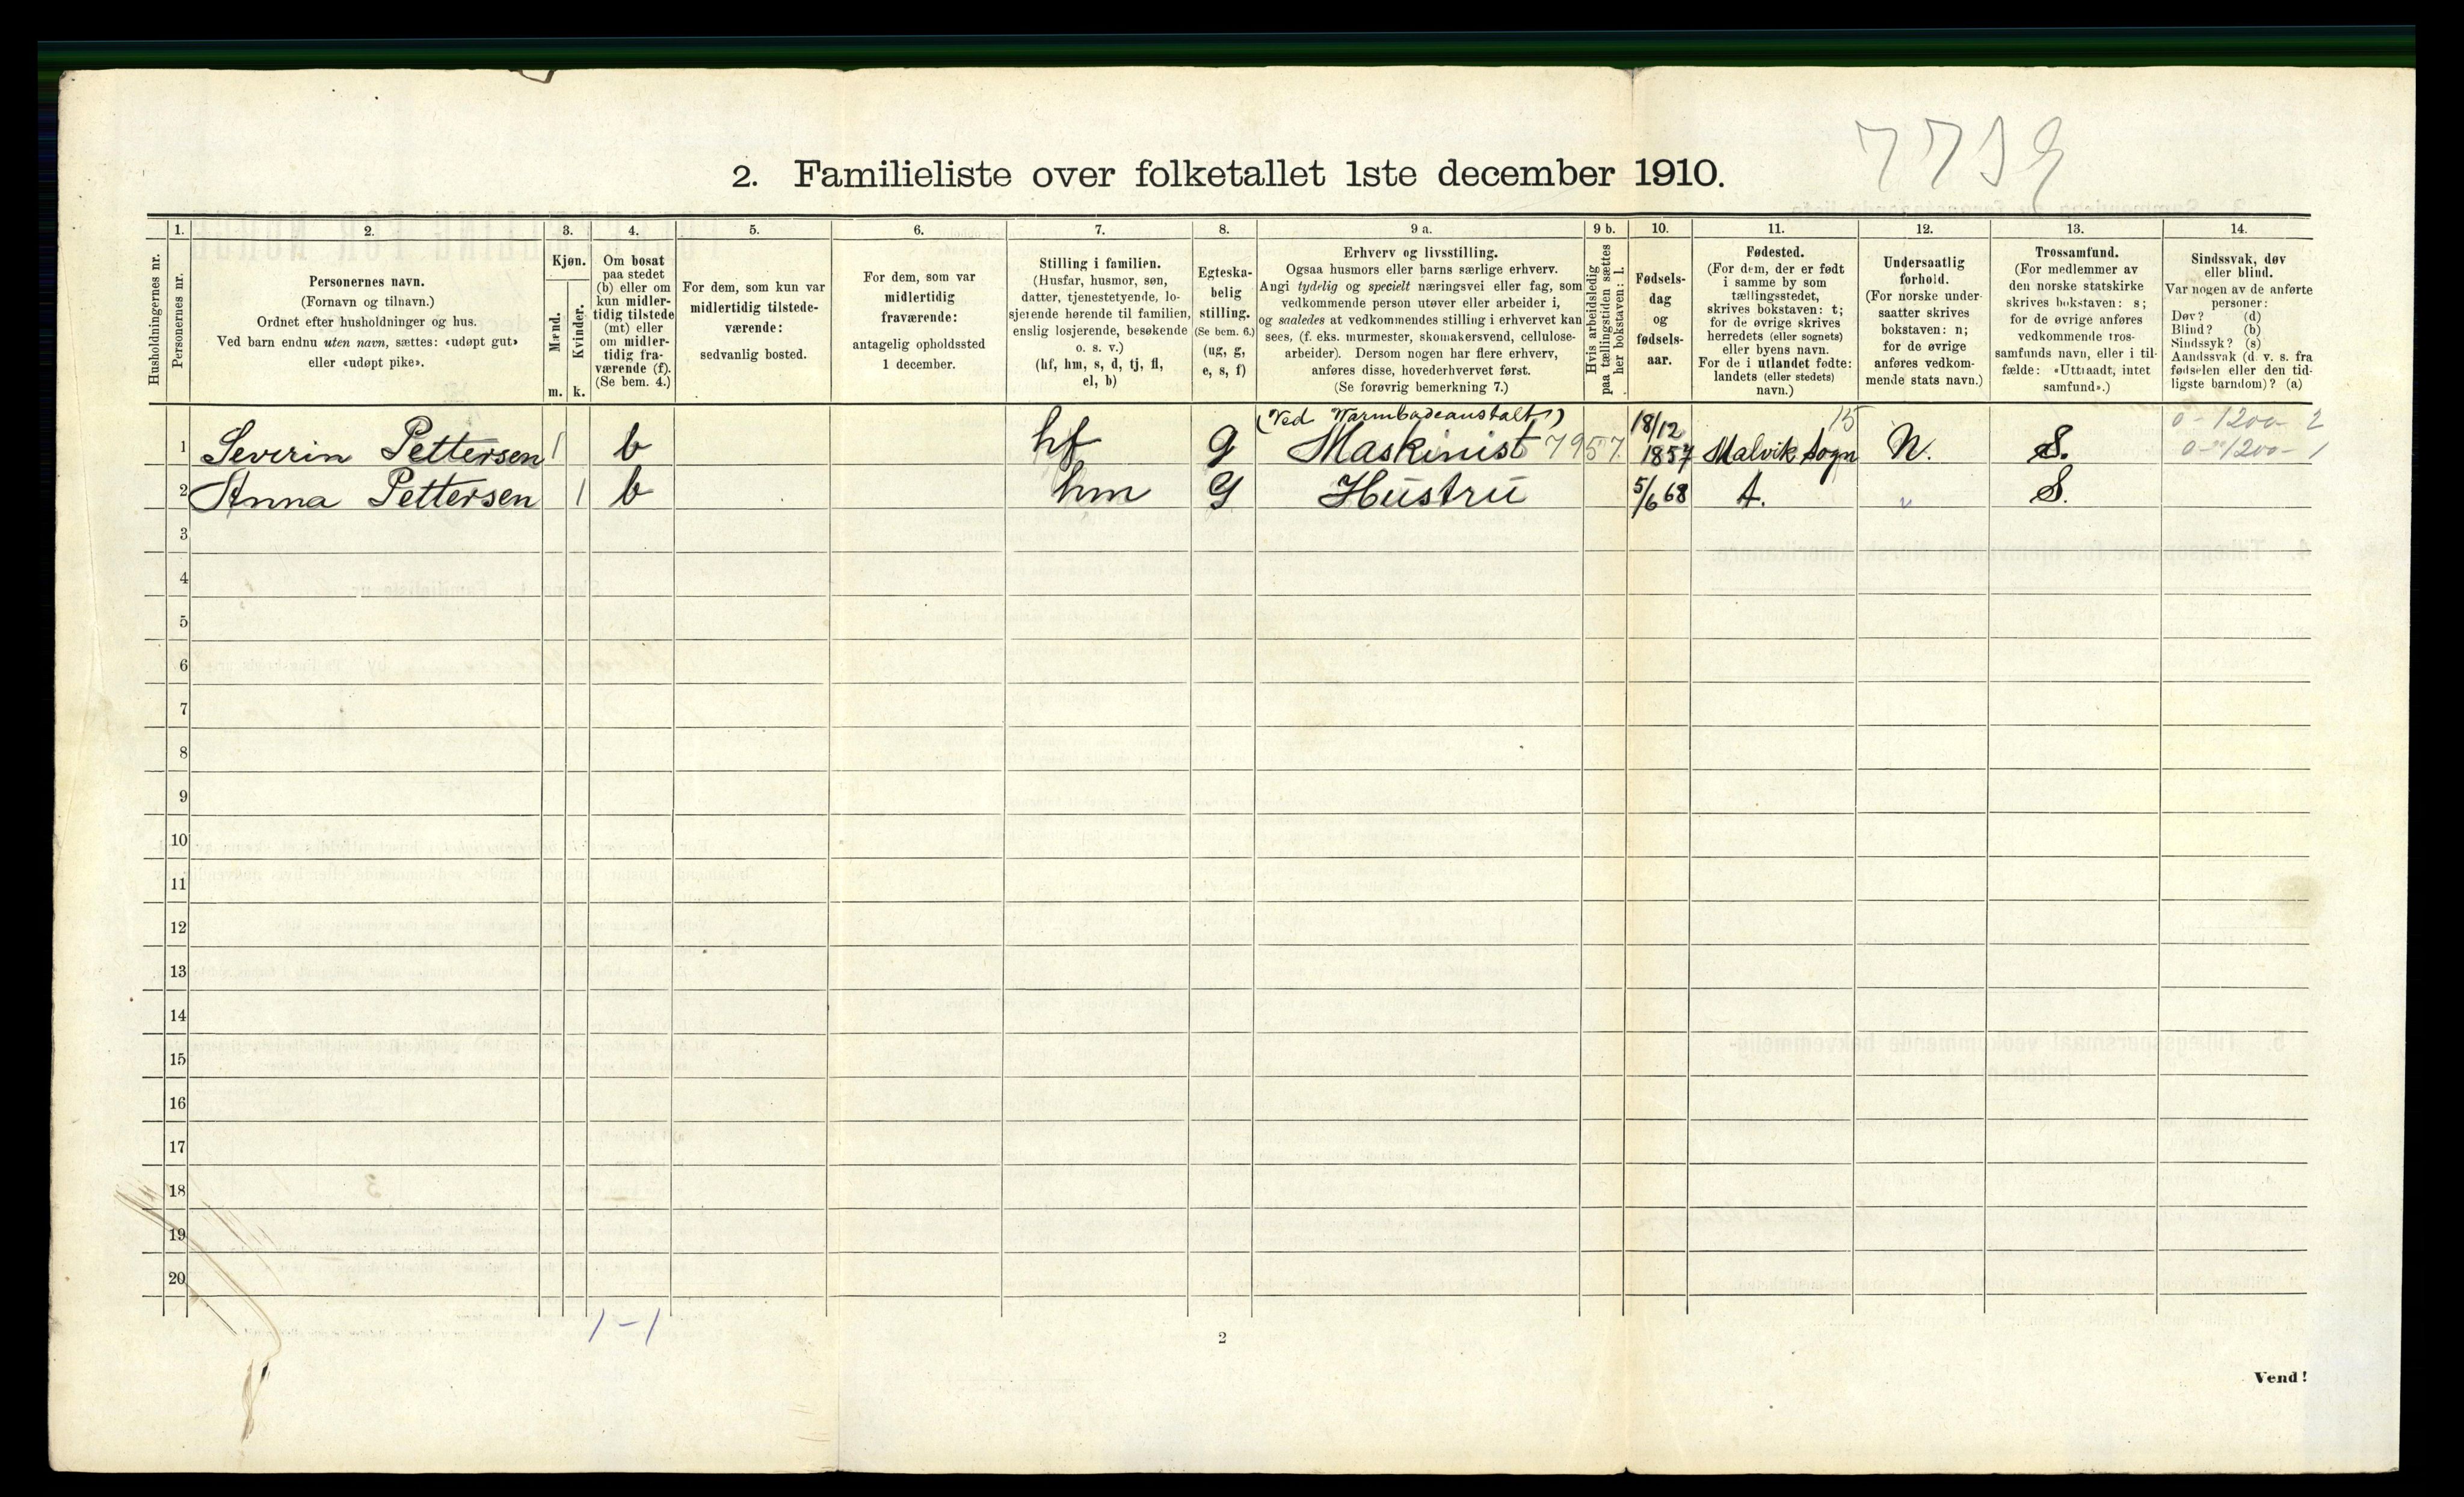 7739
2. Familieliste over folketallet 1ste december 1910.
Husholdningernes nr.
1.
Personernes nr.
2.
Personernes navn.
(Fornavn og tilnavn.)
Ordnet efter husholdninger og hus.
Ved barn endnu uten navn, sættes: «udøpt gut»
eller «udøpt pike».
3.
Kjøn.
Mænd.
Kvinder.
m. k.
4.
Om bosat
paa stedet
(b) eller om
kun midler-
tidig tilstede
(mt) eller
om midler-
tidig fra-
værende (f).
(Se bem. 4.)
5.
For dem, som kun var
midlertidig tilstede-
værende:
sedvanlig bosted.
6.
For dem, som var
midlertidig
fraværende:
antagelig opholdssted
1 december.
7.
Stilling i familien.
(Husfar, husmor, søn,
datter, tjenestetyende, lo-
sjerende hørende til familien,
enslig losjerende, besøkende
o. s. v.)
(hf, hm, s, d, tj, fl,
el, b)
8.
Egteska-
belig
stilling.
(Se bem. 6.)
(ug, g,
e, s, f)
9 a.
Erhverv og livsstilling.
Ogsaa husmors eller barns særlige erhverv.
Angi tydelig og specielt næringsvei eller fag, som
vedkommende person utøver eller arbeider i,
og saaledes at vedkommendes stilling i erhvervet kan
sees, (f. eks. murmester, skomakersvend, cellulose-
arbeider). Dersom nogen har flere erhverv,
anføres disse, hovederhvervet først.
(Se forøvrig bemerkning 7.)
9 b.
Hvis arbeidsledig
paa tællingstiden sættes
her bokstaven: l.
10.
Fødsels-
dag
og
fødsels-
aar.
11.
Fødested.
(For dem, der er født
i samme by som
tællingsstedet,
skrives bokstaven: t;
for de øvrige skrives
herredets (eller sognets)
eller byens navn.
For de i utlandet fødte:
landets (eller stedets)
navn.)
12.
Undersaatlig
forhold.
(For norske under-
saatter skrives
bokstaven: n;
for de øvrige
anføres vedkom-
mende stats navn.)
13.
Trossamfund.
(For medlemmer av
den norske statskirke
skrives bokstaven: s;
for de øvrige anføres
vedkommende tros-
samfunds navn, eller i til-
fælde: «Uttraadt, intet
samfund».)
14.
Sindssvak, døv
eller blind.
Var nogen av de anførte
personer:
Døv? (d)
Blind? (b)
Sindssyk? (s)
Aandssvak (d. v. s. fra
fødselen eller den tid-
ligste barndom)? (a)
(Ved Varmbadeanstalt) 18/12 15 0-1200-2
1 Severin Pettersen 1 b hf g Maskinist 7957. 1857 Malvik Sogn N. S.
2 Anna Pettersen 1 b hm g Hustru 5/6 68 t. S.
3
4
5
6
7
8
9
10
11
12
13
14
15
16
17
18
19
20
1-1
2
Vend!